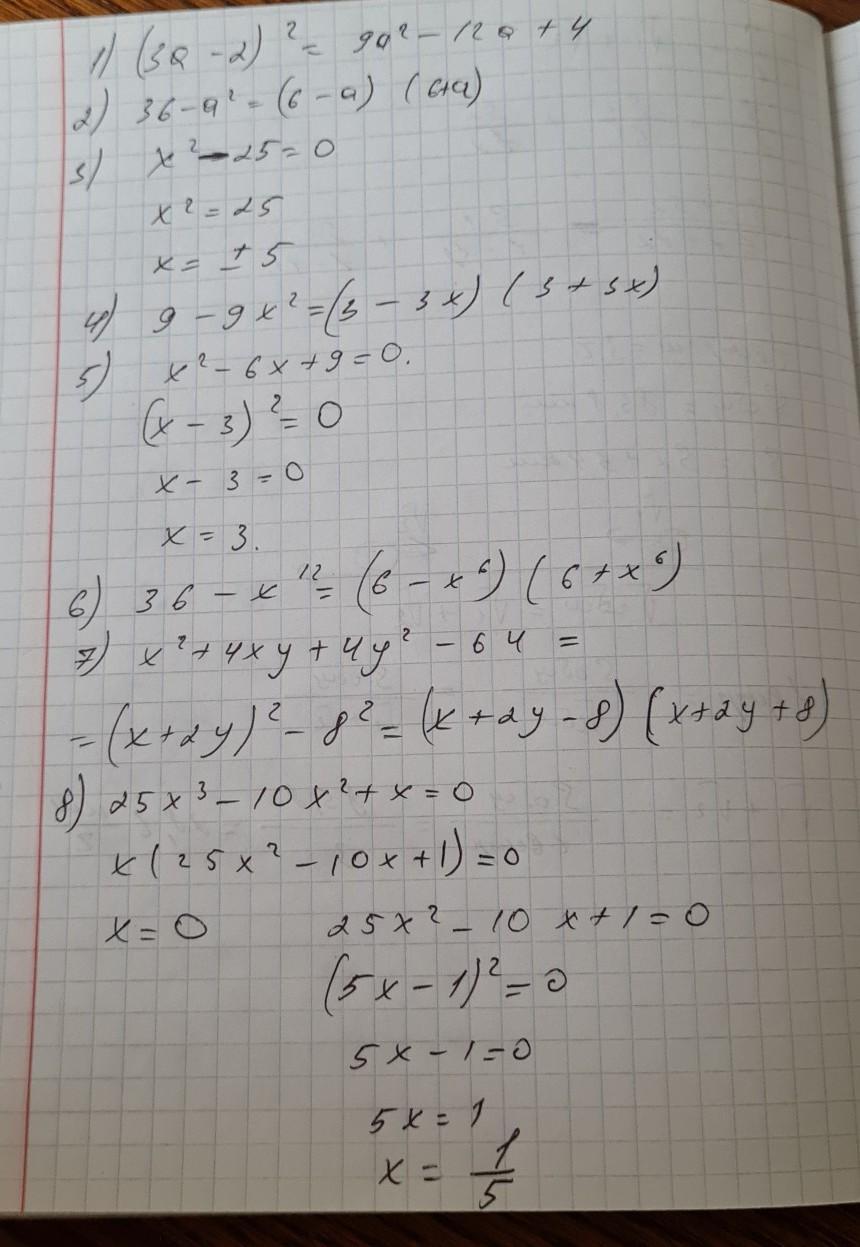 1) (3a - 2)² = 9a² - 12a + 4
2) 36 - a² = (6 - a) (6+a)
3) x² - 25 = 0
x² = 25
x = ± 5
4) 9 - 9x² = (3 - 3x) (3 + 3x)
5) x² - 6x + 9 = 0.
(x - 3)² = 0
x - 3 = 0
x = 3.
6) 36 - x¹² = (6 - x⁶) (6 + x⁶)
7) x² + 4xy + 4y² - 64 =
= (x+2y)² - 8² = (x+2y - 8) (x+2y+8)
8) 25x³ - 10x² + x = 0
x(25x² - 10x + 1) = 0
x = 0 25x² - 10x + 1 = 0
(5x - 1)² = 0
5x - 1 = 0
5x = 1
x = 1/5